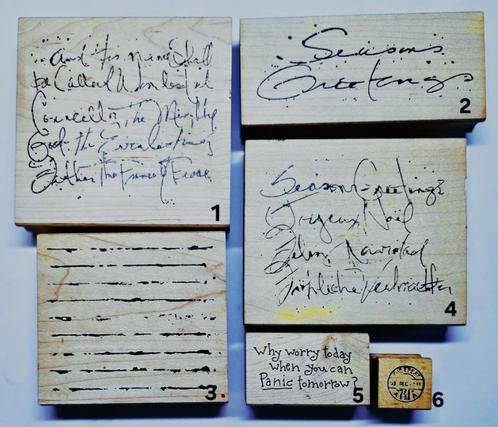 and his name shall
be called Wonderful
Councellor, The Mighty
God, the Everlasting
Father, The Prince of Peace
1
Seasons
Greetings
2
3.
Season Greetings
Joyeux Noël
Feliz Navidad
Fröhliche Weihnachten
4
Why worry today
when you can
Panic tomorrow?
5
6